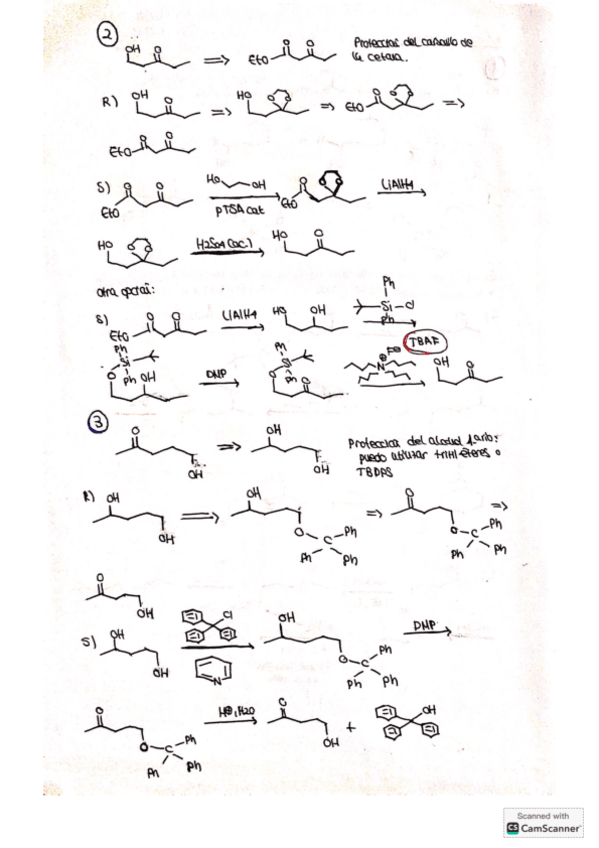 2
OH O ⇒ EtO O O Protección del carbonilo de la cetona.
R) OH O ⇒ HO O O ⇒ EtO O O O ⇒
EtO O O
S) O O EtO HO OH pTSA cat EtO O O O LiAlH4
HO O O H2SO4 (ac.) HO O
otra opción:
S) EtO O O LiAlH4 HO OH Ph Si Cl Ph
Ph Si O Ph OH DMP Ph Si O Ph O N ⊕ F⊖ TBAF OH O
3
O OH ⇒ OH OH Protección del alcohol 1ario:
puedo utilizar tritil éteres o
TBDPS
R) OH OH ⇒ OH O C Ph Ph Ph ⇒ O O C Ph Ph Ph ⇒
O OH
S) OH OH Cl N OH O C Ph Ph Ph DMP
O O C Ph Ph Ph H⊕, H2O O OH + OH
Scanned with
CS CamScanner